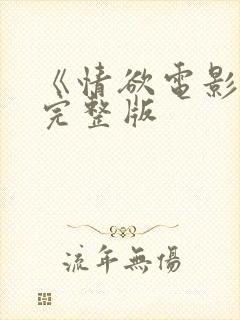 《情欲電影
完整版
流年無傷